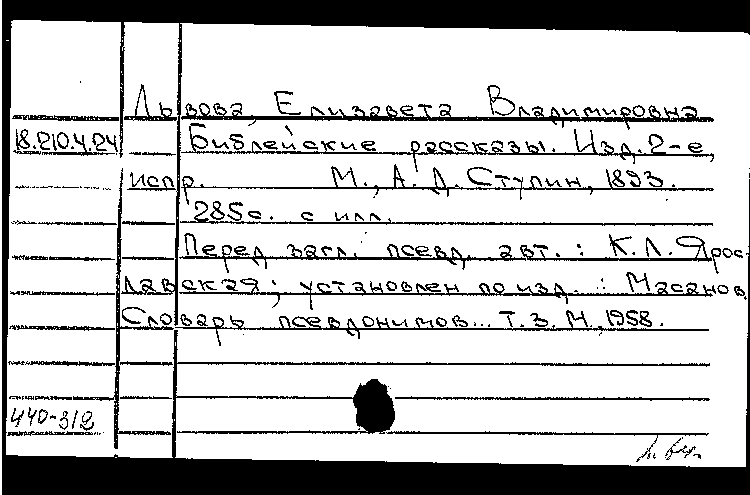 Львова, Елизавета Владимировна
18.210.4.24 Библейские рассказы. Изд. 2-е,
испр. М., А. Д. Ступин, 1893.
285с. с илл.
Перед загл. псевд. авт.: К. Л. Ярос-
лавская; установлен по изд.: Масанов
Словарь псевдонимов... Т. 3. М., 1958.
440-312